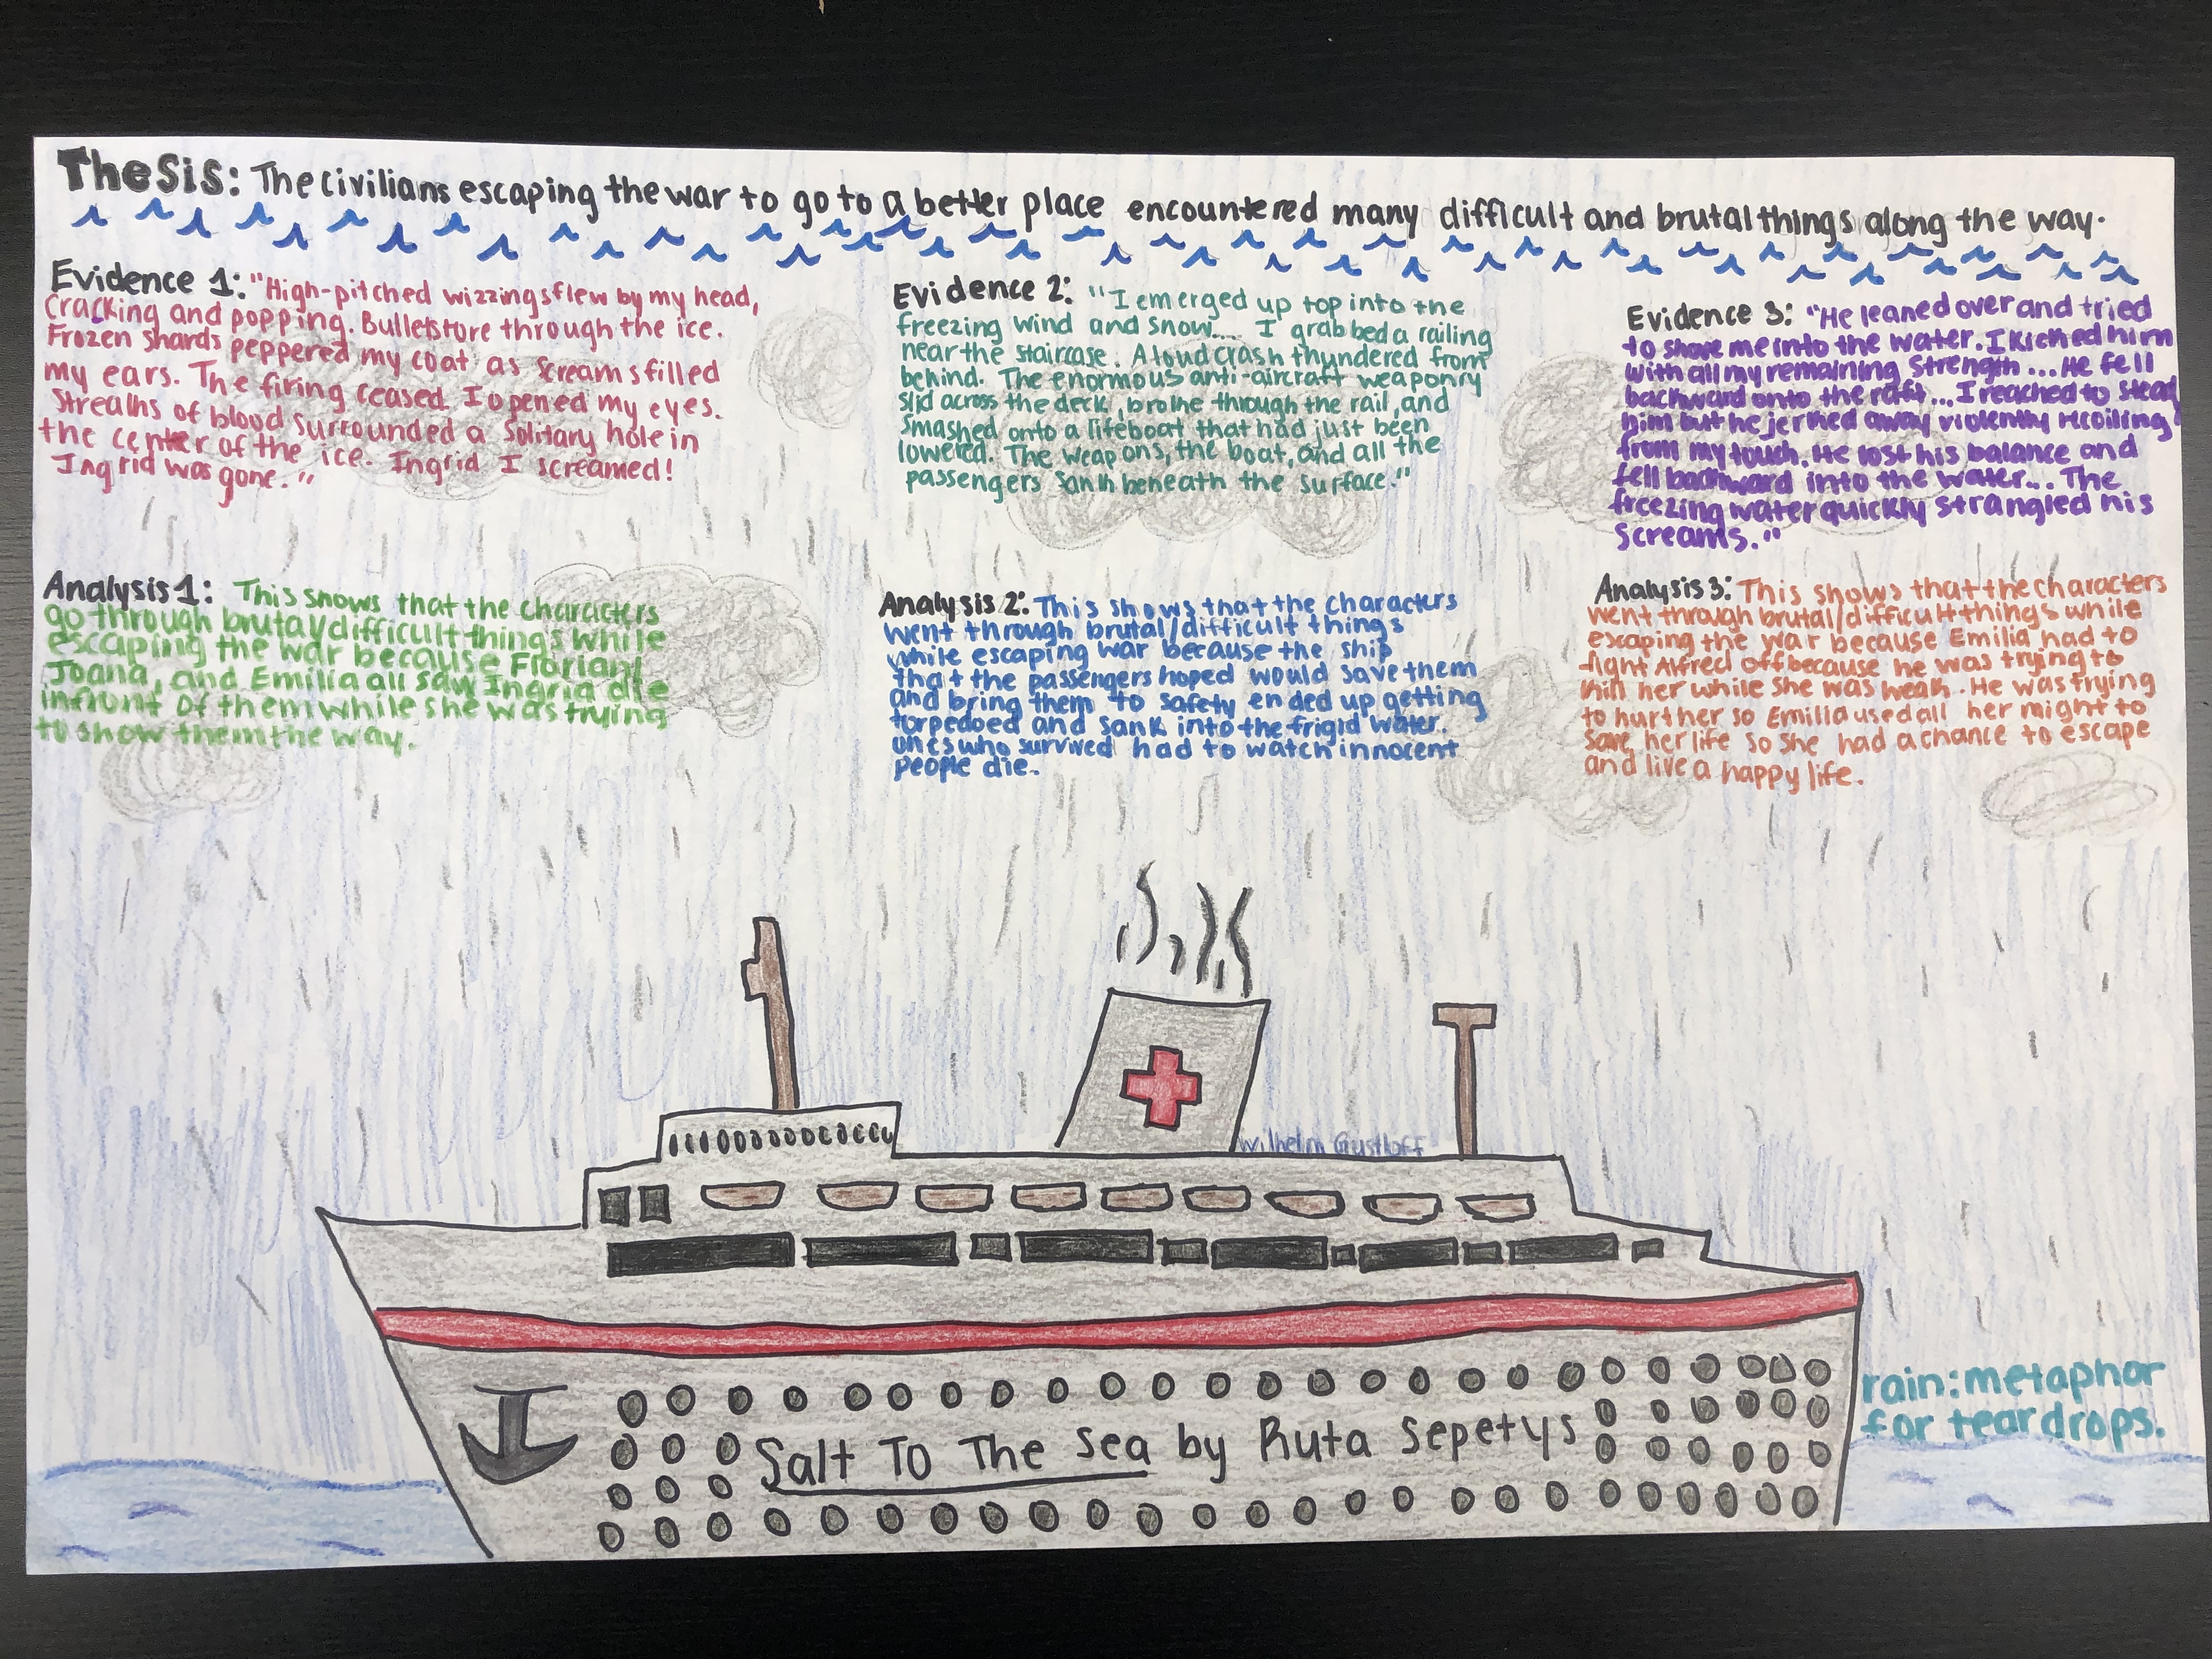 Thesis: The civilians escaping the war to go to a better place encountered many difficult and brutal things along the way.
Evidence 1: "High-pitched wizzings flew by my head,
Cracking and popping. Bullets tore through the ice.
Frozen shards peppered my coat as screams filled
my ears. The firing ceased. I opened my eyes.
Streaks of blood surrounded a solitary hole in
the center of the ice. Ingrid I screamed!
Ingrid was gone."
Evidence 2: "I emerged up top into the
freezing wind and snow.... I grabbed a railing
near the staircase. A loud crash thundered from
behind. The enormous anti-aircraft weaponry
slid across the deck, broke through the rail, and
smashed onto a lifeboat that had just been
lowered. The weapons, the boat, and all the
passengers sank beneath the surface."
Evidence 3: "He leaned over and tried
to shove me into the water. I kicked him
with all my remaining strength.... He fell
backward onto the raft.... I reached to steady
him but he jerked away violently recoiling
from my touch. He lost his balance and
fell backward into the water... The
freezing water quickly strangled his
screams."
Analysis 1: This shows that the characters
go through brutal/difficult things while
escaping the war because Florian,
Joana, and Emilia all saw Ingrid die
infront of them while she was trying
to show them the way.
Analysis 2: This shows that the characters
went through brutal/difficult things
while escaping war because the ship
that the passengers hoped would save them
and bring them to safety ended up getting
torpedoed and sank into the frigid water.
ones who survived had to watch innocent
people die.
Analysis 3: This shows that the characters
went through brutal/difficult things while
escaping the war because Emilia had to
fight Alfred off because he was trying to
kill her while she was weak. He was trying
to hurt her so Emilia used all her might to
save her life so she had a chance to escape
and live a happy life.
Wilhelm Gustloff
rain: metaphor
for tear drops.
Salt To The Sea by Ruta Sepetys